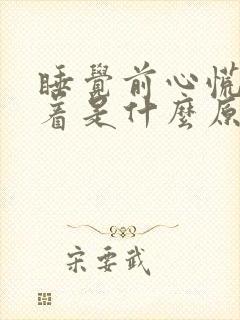 睡覺前心慌
着是什麼原
宋要武